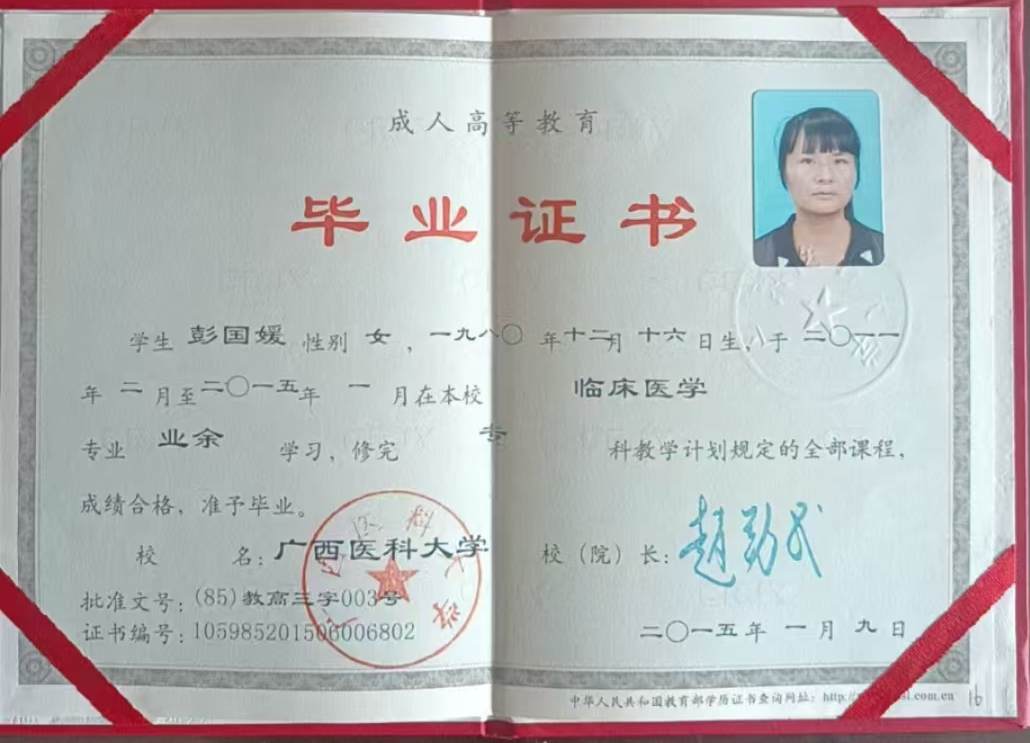 成人高等教育
毕业证书
学生 彭国媛 性别 女，一九八〇年十二月十六日生，于二〇一一
年二月至二〇一五年一月在本校 临床医学
专业 业余 学习，修完 专 科教学计划规定的全部课程，
成绩合格，准予毕业。
校 名：广西医科大学 校（院）长：赵劲民
批准文号：(85)教高三字003号
证书编号：105985201506006802
二〇一五年一月九日
中华人民共和国教育部学历证书查询网址：http://
.com.cn
16